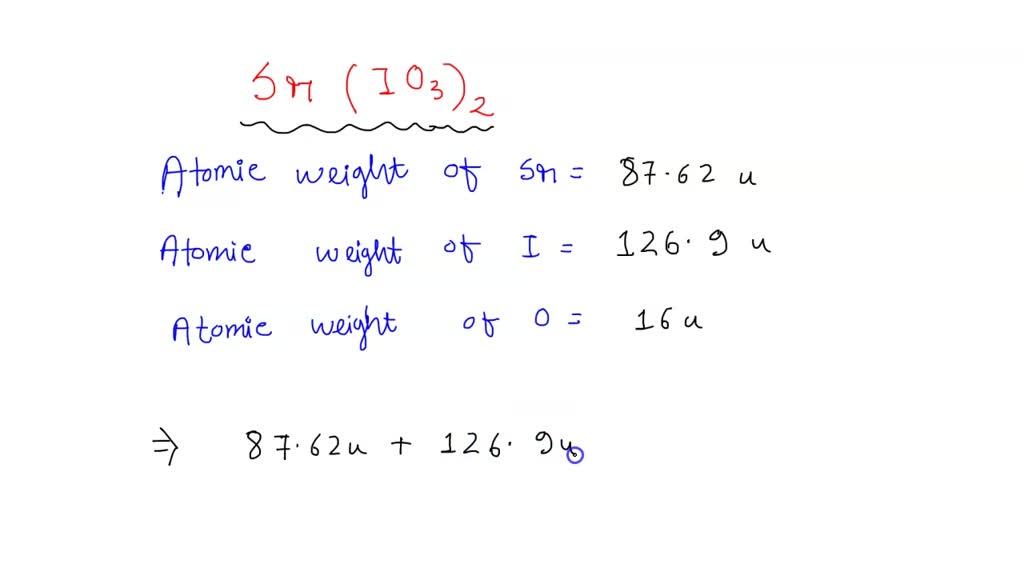 Sr (IO3)2
Atomic weight of Sr = 87.62 u
Atomic weight of I = 126.9 u
Atomic weight of O = 16 u
⇒ 87.62u + 126.9u